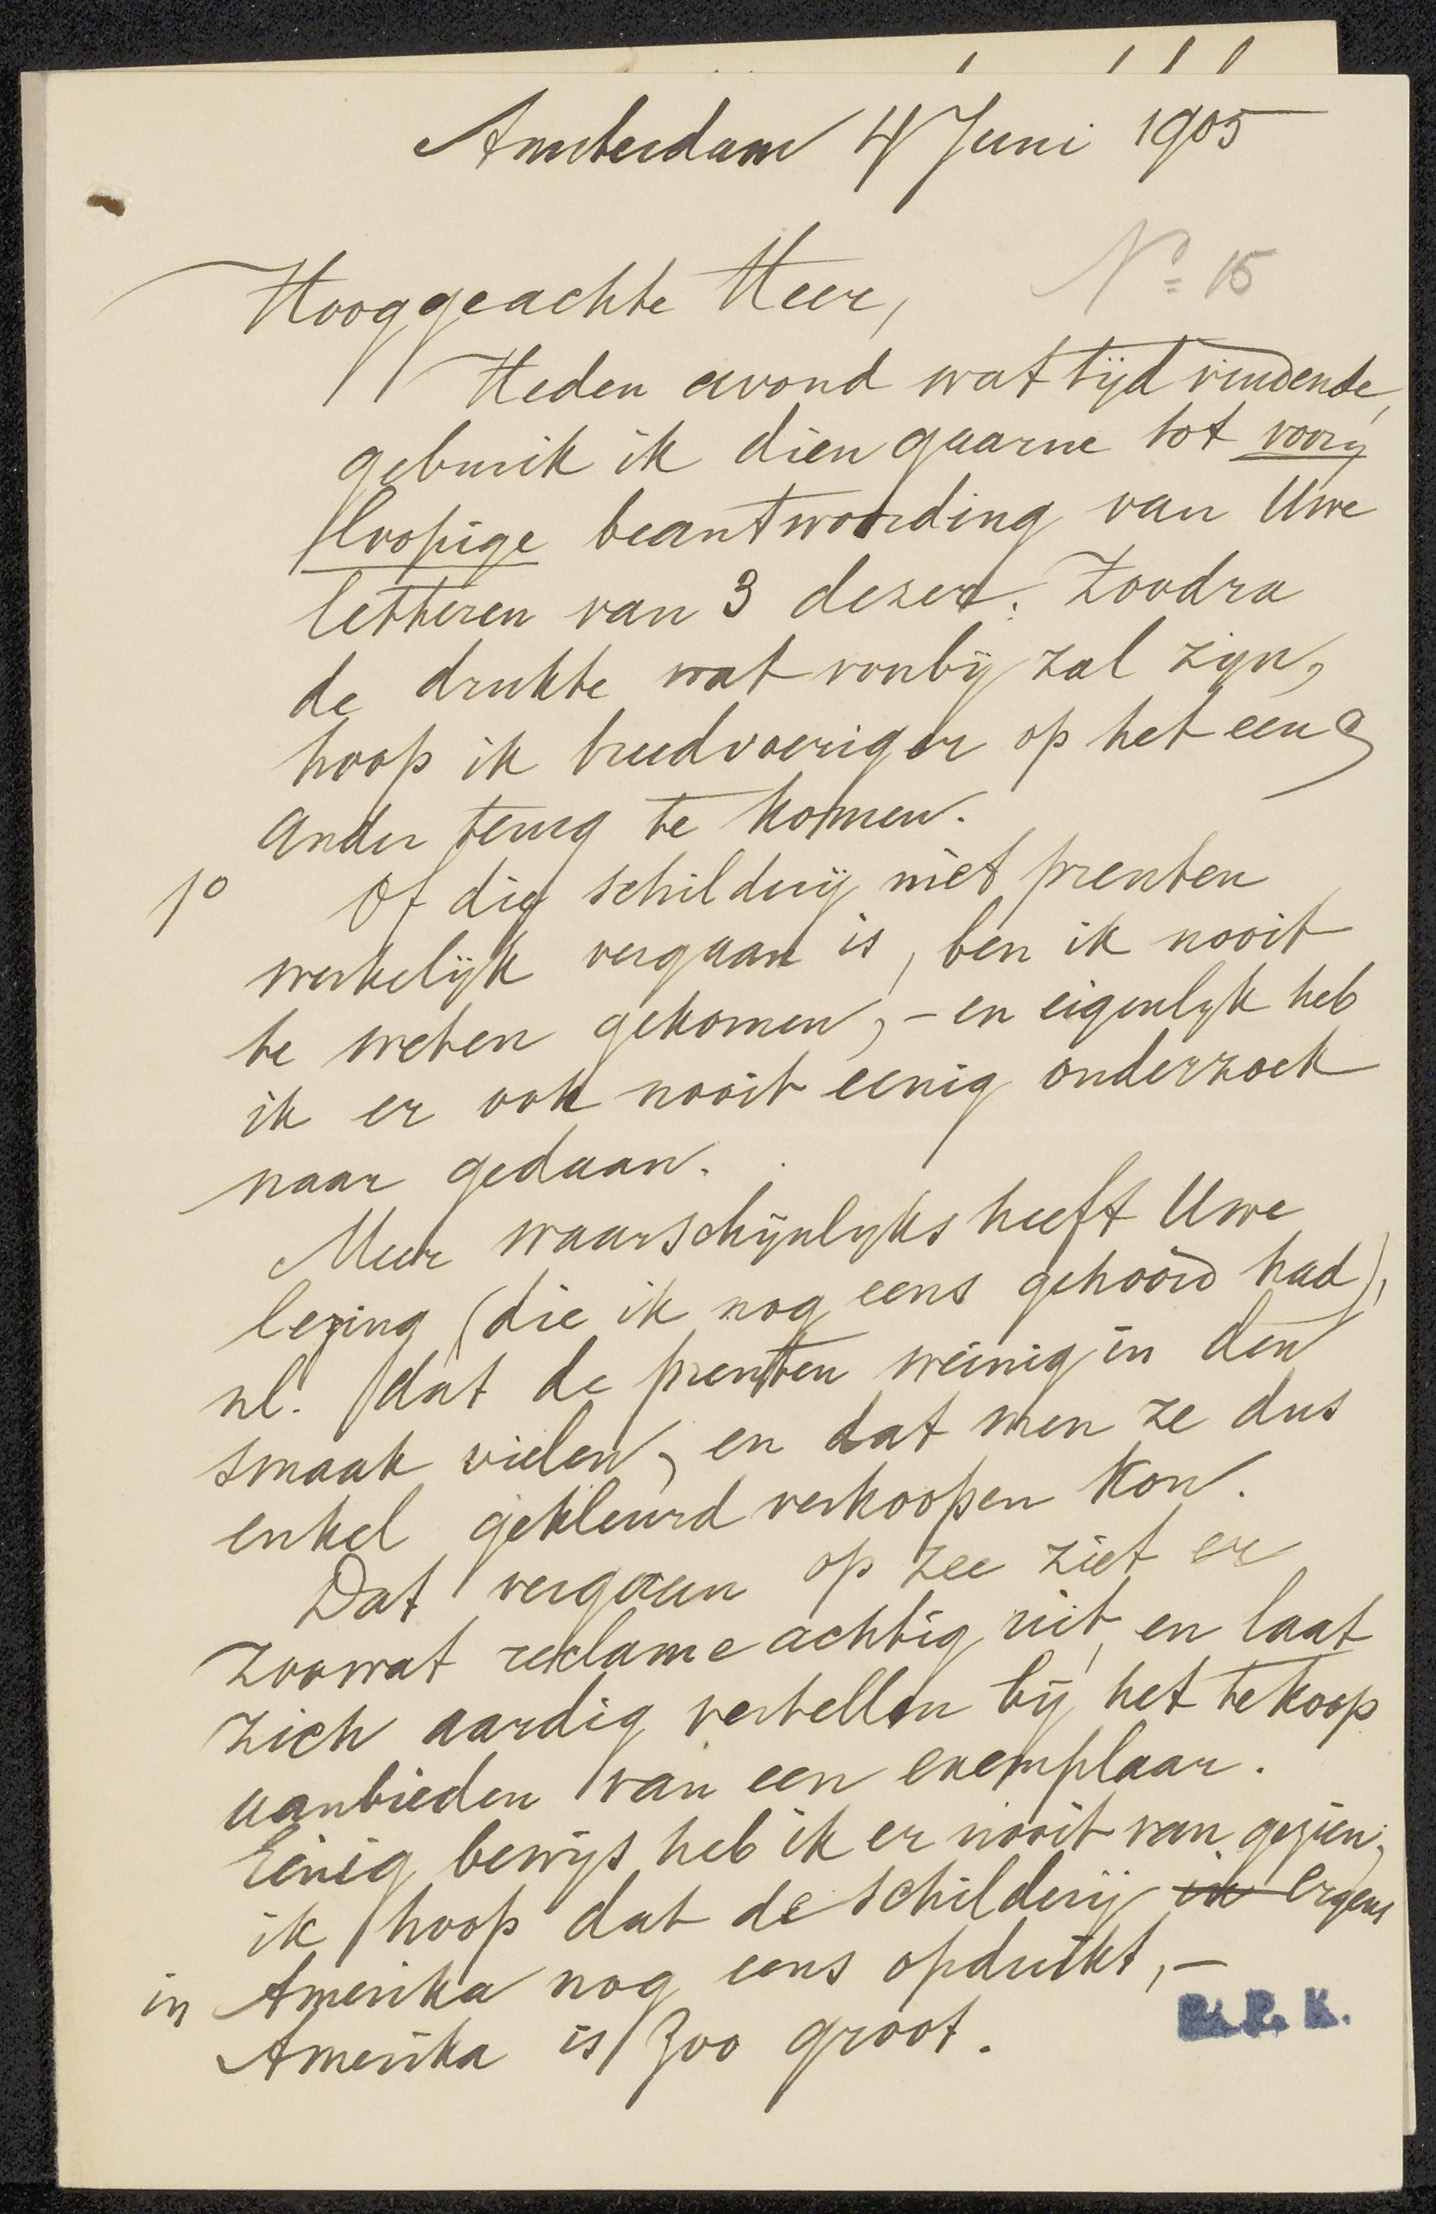 Amsterdam 4 Juni 1905
No 15
Hooggeachte Heer,
Heden avond wat tijd vindende,
gebruik ik dien gaarne tot voor=
loopige beantwoording van Uwe
letteren van 3 dezer. Zoodra
de drukte wat voorbij zal zijn,
hoop ik breedvoeriger op het een &
ander terug te komen.
1o Of die schilderij met prenten
werkelijk vergaan is, ben ik nooit
te weten gekomen, - en eigenlijk heb
ik er ook nooit eenig onderzoek
naar gedaan.
Meer waarschijnlijks heeft Uwe
lezing (die ik nog eens gehoord had),
nl. dat de prenten weinig in den
smaak vielen, en dat men ze dus
enkel gekleurd verkoopen kon.
Dat vergaan op zee ziet er
zoowat reclameachtig uit, en laat
zich aardig vertellen bij het te koop
aanbieden van een exemplaar.
Eenig bewijs heb ik er nooit van gezien;
ik hoop dat de schilderij in ergens
in Amerika nog eens opduikt, -
Amerika is zoo groot.
R. P. K.